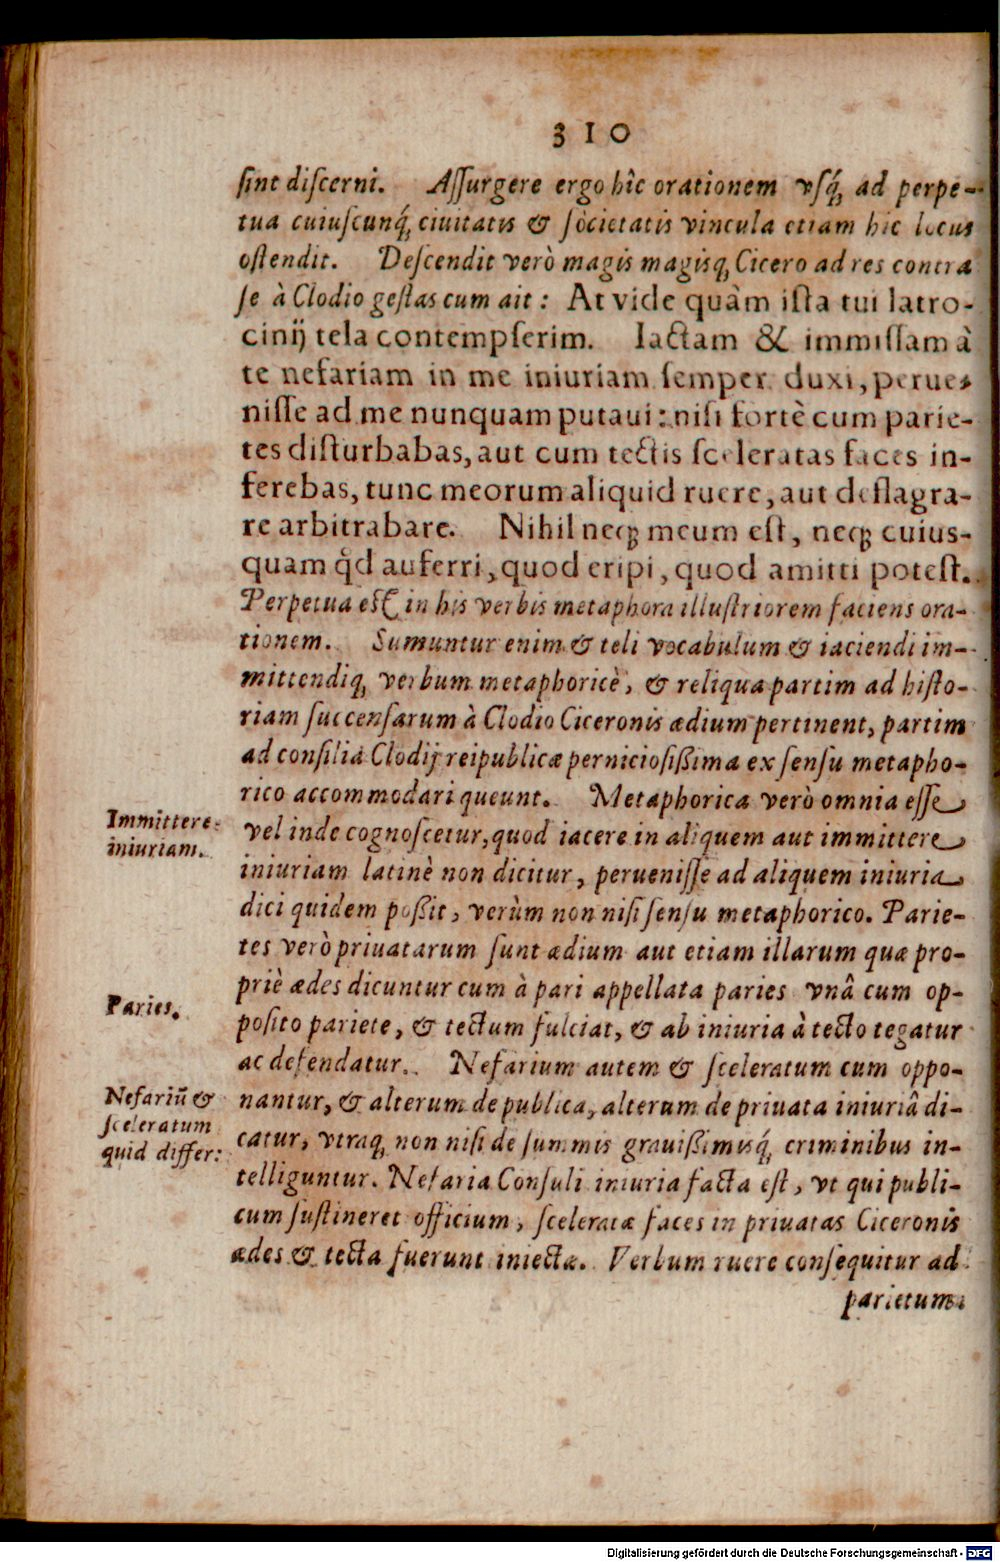 310
ſint diſcerni. Aſſurgere ergo hîc orationem vſq́; ad perpe-
tua cuiuſcunq́; ciuitatis & ſocietatis vincula etiam hic locus
oſtendit. Deſcendit verò magis magisq; Cicero ad res contra
ſe à Clodio geſtas cum ait: At vide quàm iſta tui latro-
cinij tela contempſerim. Iactam & immiſſam à
te nefariam in me iniuriam ſemper duxi, perue-
niſſe ad me nunquam putaui: niſi fortè cum parie-
tes diſturbabas, aut cum tectis ſceleratas faces in-
ferebas, tunc meorum aliquid ruere, aut deflagra-
re arbitrabare. Nihil neq; meum eſt, neq; cuius-
quam qd̊ auferri, quod eripi, quod amitti poteſt.
Perpetua eſt in his verbis metaphora illuſtriorem faciens ora-
tionem. Sumuntur enim & teli vocabulum & iaciendi im-
mittendiq; verbum metaphoricè, & reliqua partim ad hiſto-
riam ſuccenſarum à Clodio Ciceronis ædium pertinent, partim
ad conſilia Clodij reipublicæ pernicioſißima ex ſenſu metapho-
rico accommodari queunt. Metaphorica verò omnia eſſe
Immittere
iniuriam.
vel inde cognoſcetur, quod iacere in aliquem aut immittere
iniuriam latinè non dicitur, perueniſſe ad aliquem iniuria
dici quidem poßit, verùm non niſi ſenſu metaphorico. Parie-
tes verò priuatarum ſunt ædium aut etiam illarum quæ pro-
priè ædes dicuntur cum à pari appellata paries vnâ cum op-
Paries.
poſito pariete, & tectum fulciat, & ab iniuria à tecto tegatur
ac defendatur. Nefarium autem & ſceleratum cum oppo-
Nefariũ &
ſceleratum
quid differ:
nantur, & alterum de publica, alterum de priuata iniuriâ di-
catur, vtraq; non niſi de ſummis grauißimisq́; criminibus in-
telliguntur. Nefaria Conſuli iniuria facta eſt, vt qui publi-
cum ſuſtineret officium, ſceleratæ faces in priuatas Ciceronis
ædes & tecta fuerunt iniectæ. Verbum ruere conſequitur ad
parietum
Digitalisierung gefördert durch die Deutsche Forschungsgemeinschaft - DFG